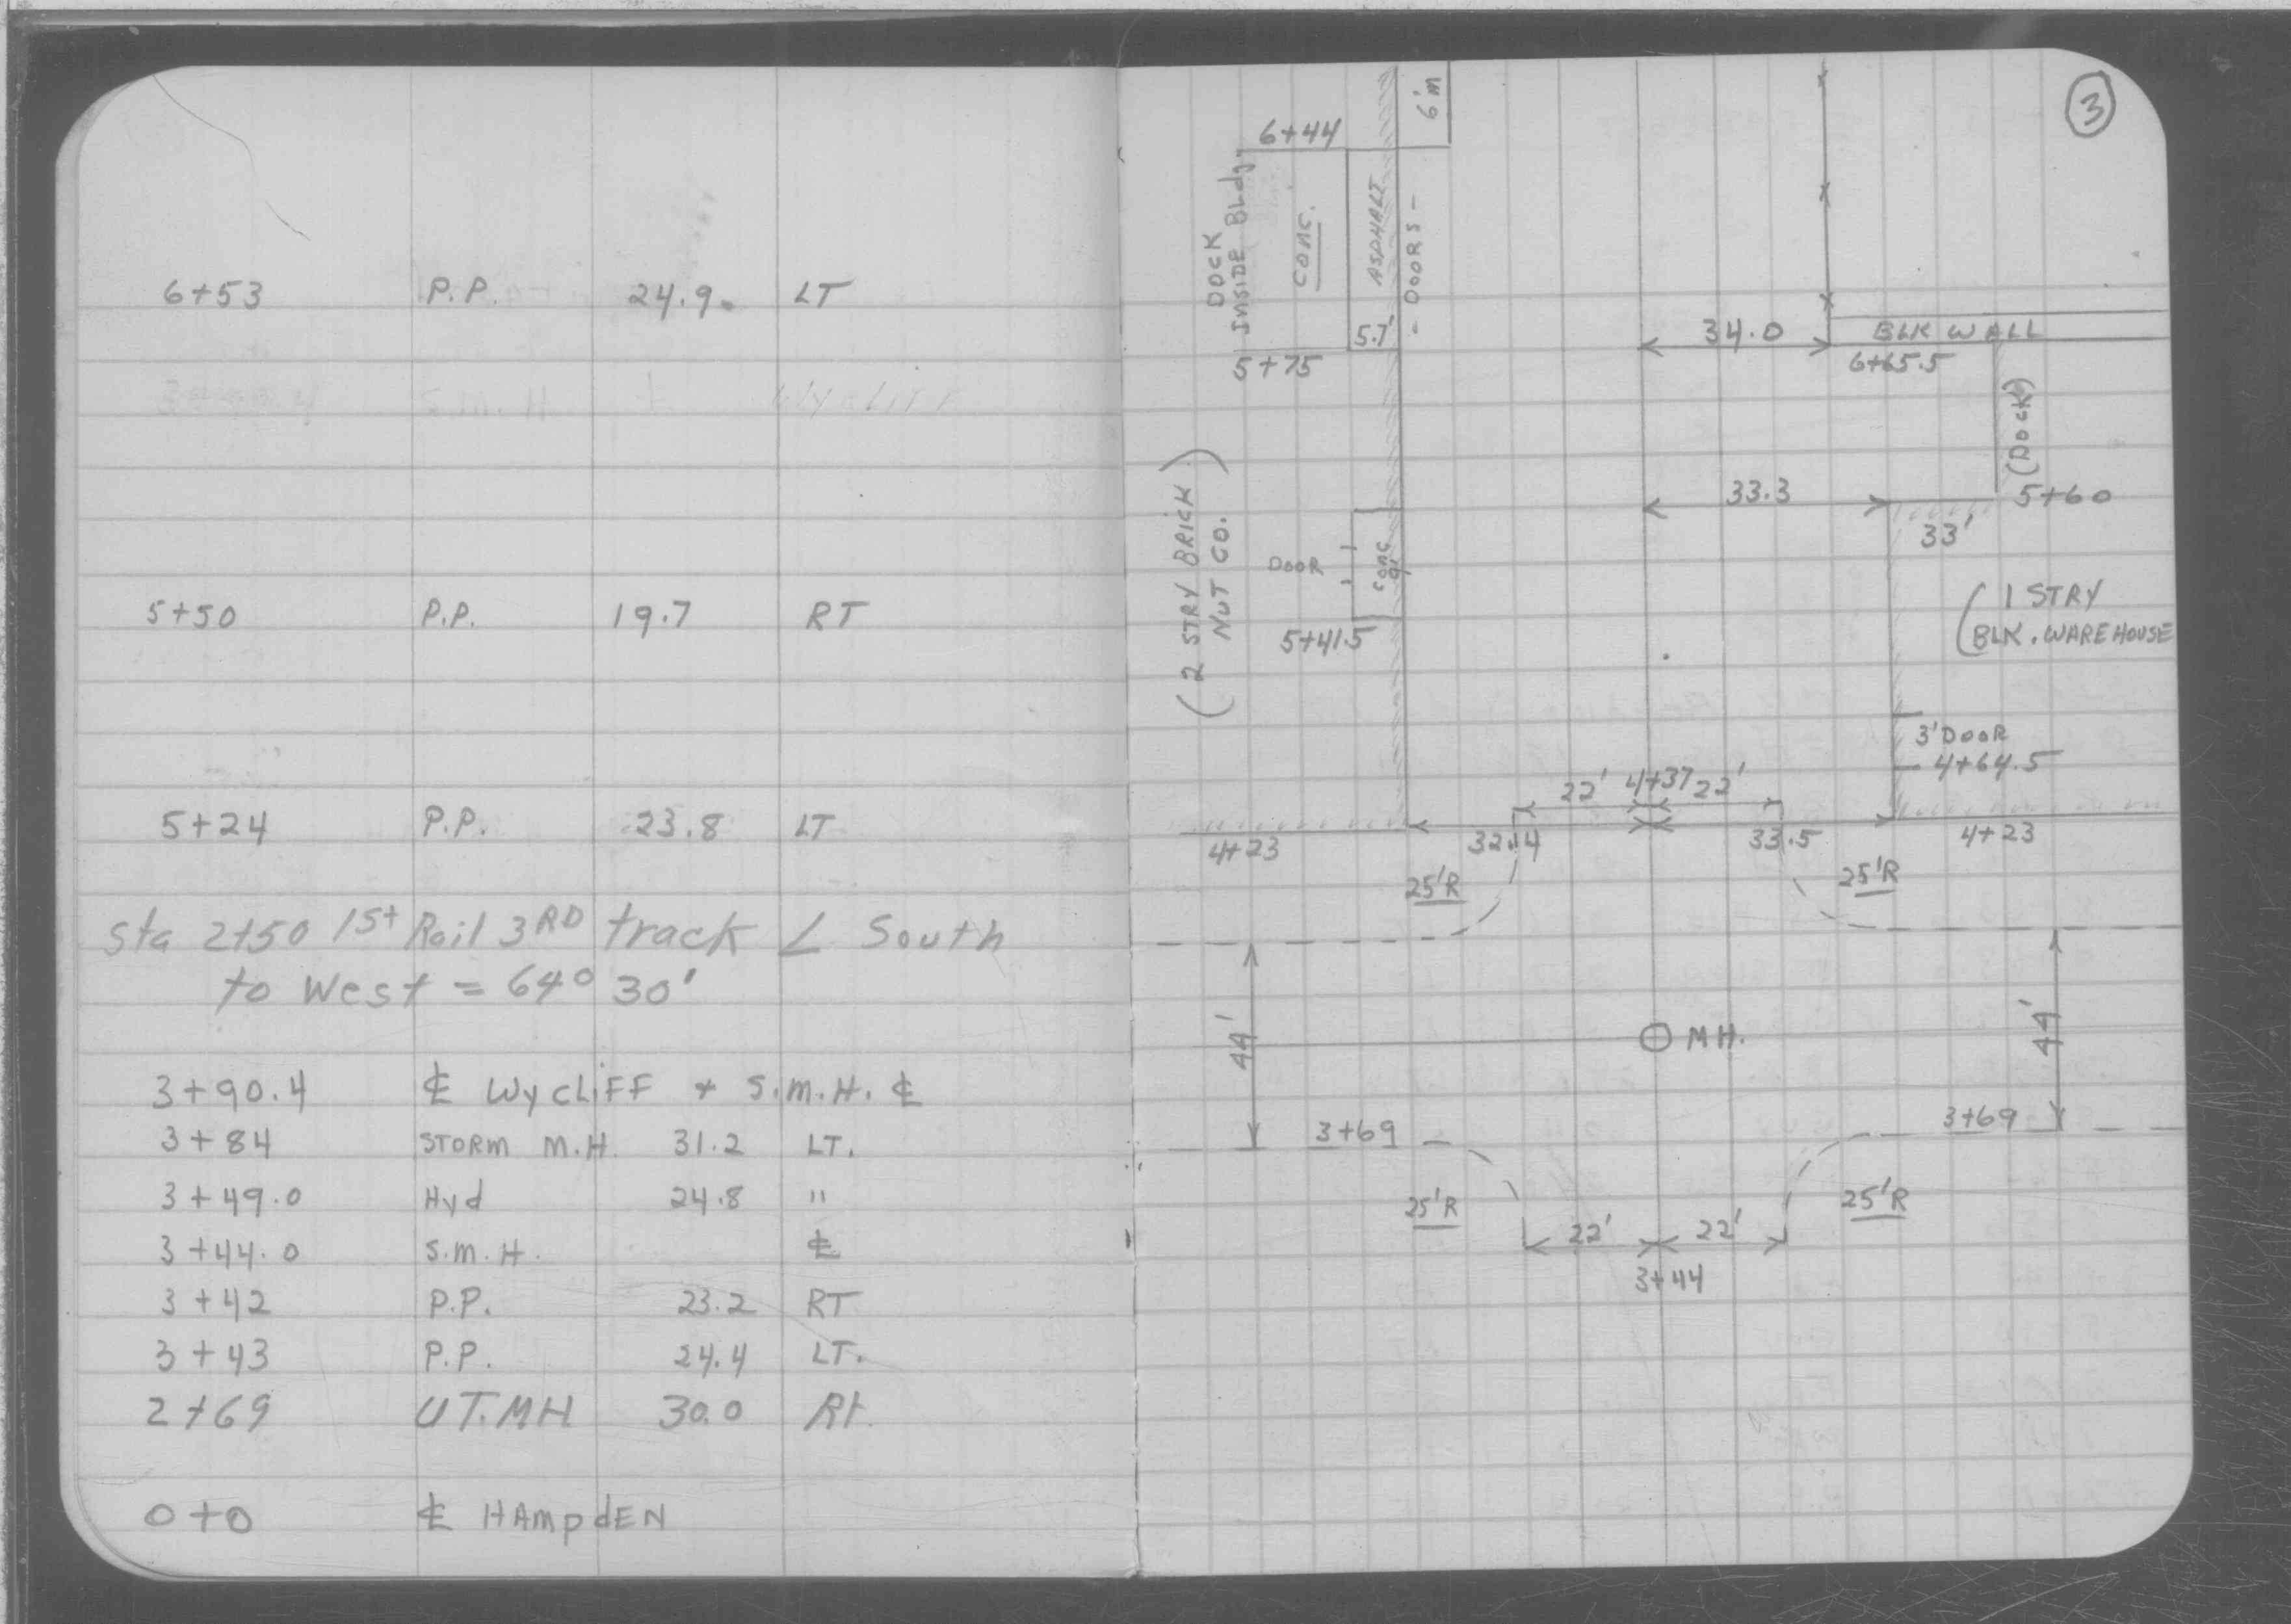 6+53 P.P. 24.9 LT
5+50 P.P. 19.7 RT
5+24 P.P. 23.8 LT
Sta 2+50 1st Rail 3RD track ∠ South
to West = 64° 30'
3+90.4 ℄ WycLiFF + S.M.H. ℄
3+84 STORM M.H. 31.2 LT.
3+49.0 Hyd 24.8 "
3+44.0 S.M.H. ℄
3+42 P.P. 23.2 RT
3+43 P.P. 24.4 LT.
2+69 UT.MH 30.0 Rt.
0+0 ℄ HAmpdEN
3
6+44
DOCK
INSIDE BLdg.
CONC.
ASPHALT
- DOORS -
5.7'
5+75
34.0
BLK WALL
6+65.5
(DOCK)
33.3
5+60
33'
(2 STRY BRICK)
NUT CO.
DOOR
CONC
5+41.5
(1 STRY
BLK. WAREHOUSE
3' DOOR
4+64.5
22' 4+37 22'
4+23 32.4 33.5 4+23
25'R 25'R
44' 44'
MH.
3+69 3+69
25'R 25'R
22' 22'
3+44